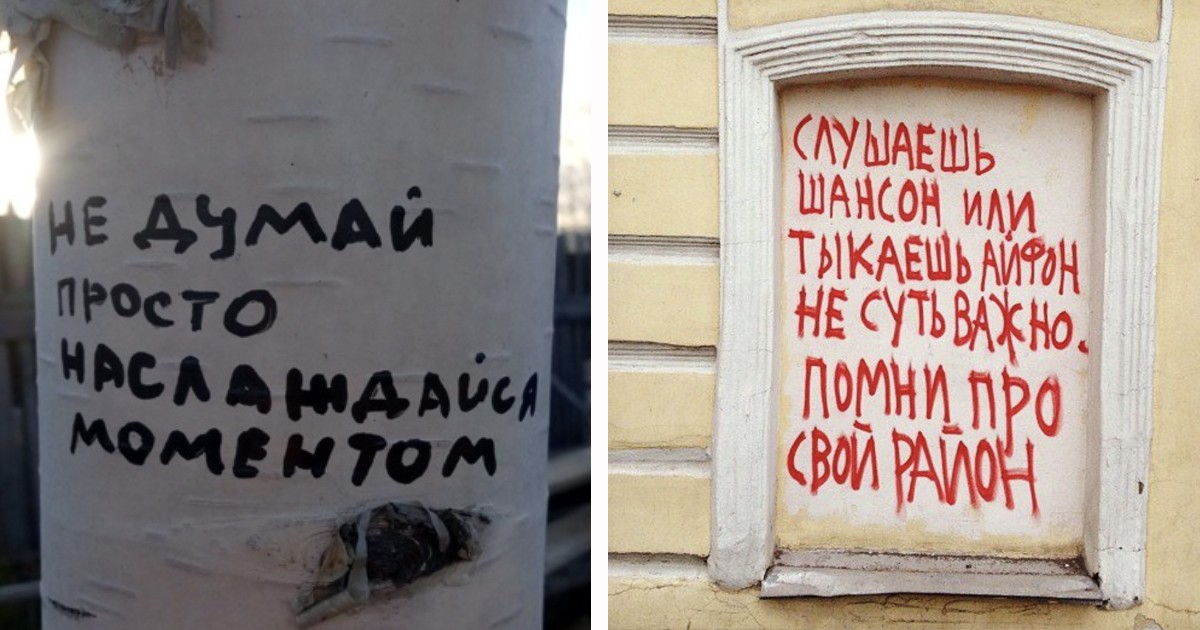 НЕ ДУМАЙ
ПРОСТО
НАСЛАЖДАЙСЯ
МОМЕНТОМ
СЛУШАЕШЬ
ШАНСОН ИЛИ
ТЫКАЕШЬ АЙФОН
НЕ СУТЬ ВАЖНО.
ПОМНИ ПРО
СВОЙ РАЙОН